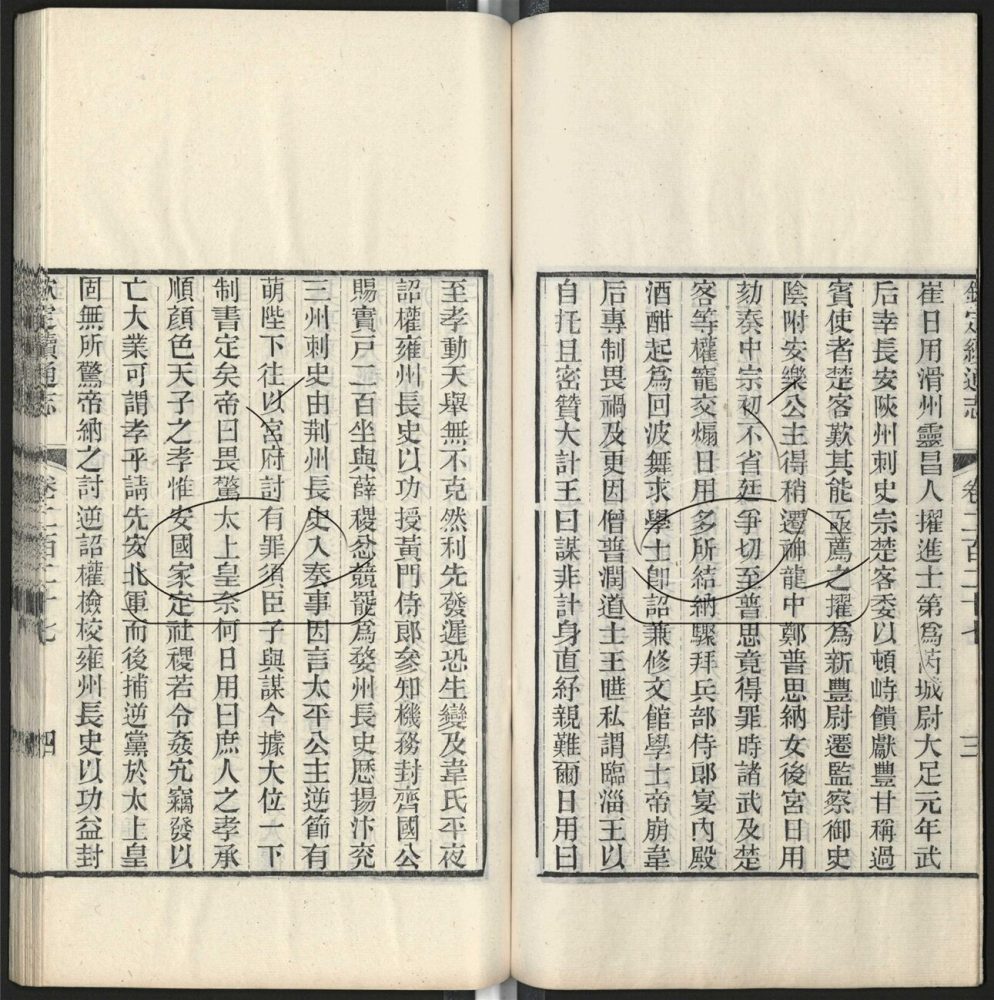 欽定續通志 卷二百二十七 三
崔日用滑州靈昌人擢進士第爲芮城尉大足元年武
后幸長安陝州刺史宗楚客委以頓峙饋獻豐甘稱過
賓使者楚客歎其能亟薦之擢爲新豐尉遷監察御史
陰附安樂公主得稍遷神龍中鄭普思納女後宮日用
劾奏中宗初不省廷爭切至普思竟得罪時諸武及楚
客等權寵交煽日用多所結納驟拜兵部侍郎宴內殿
酒酣起爲回波舞求學士卽詔兼修文館學士帝崩韋
后專制畏禍及更因僧普潤道士王曄私謂臨淄王以
自托且密贊大計王曰謀非計身直紓親難爾日用曰
至孝動天舉無不克然利先發遲恐生變及韋氏平夜
詔權雍州長史以功授黃門侍郎參知機務封齊國公
賜實戶二百坐與薛稷忿競罷爲婺州長史歷揚汴兗
三州刺史由荆州長史入奏事因言太平公主逆節有
萌陛下往以宮府討有罪須臣子與謀今據大位一下
制書定矣帝曰畏驚太上皇奈何日用曰庶人之孝承
順顏色天子之孝惟安國家定社稷若令姦宄竊發以
亡大業可謂孝乎請先安北軍而後捕逆黨於太上皇
固無所驚帝納之討逆詔權檢校雍州長史以功益封
欽定續通志 卷二百二十七 四